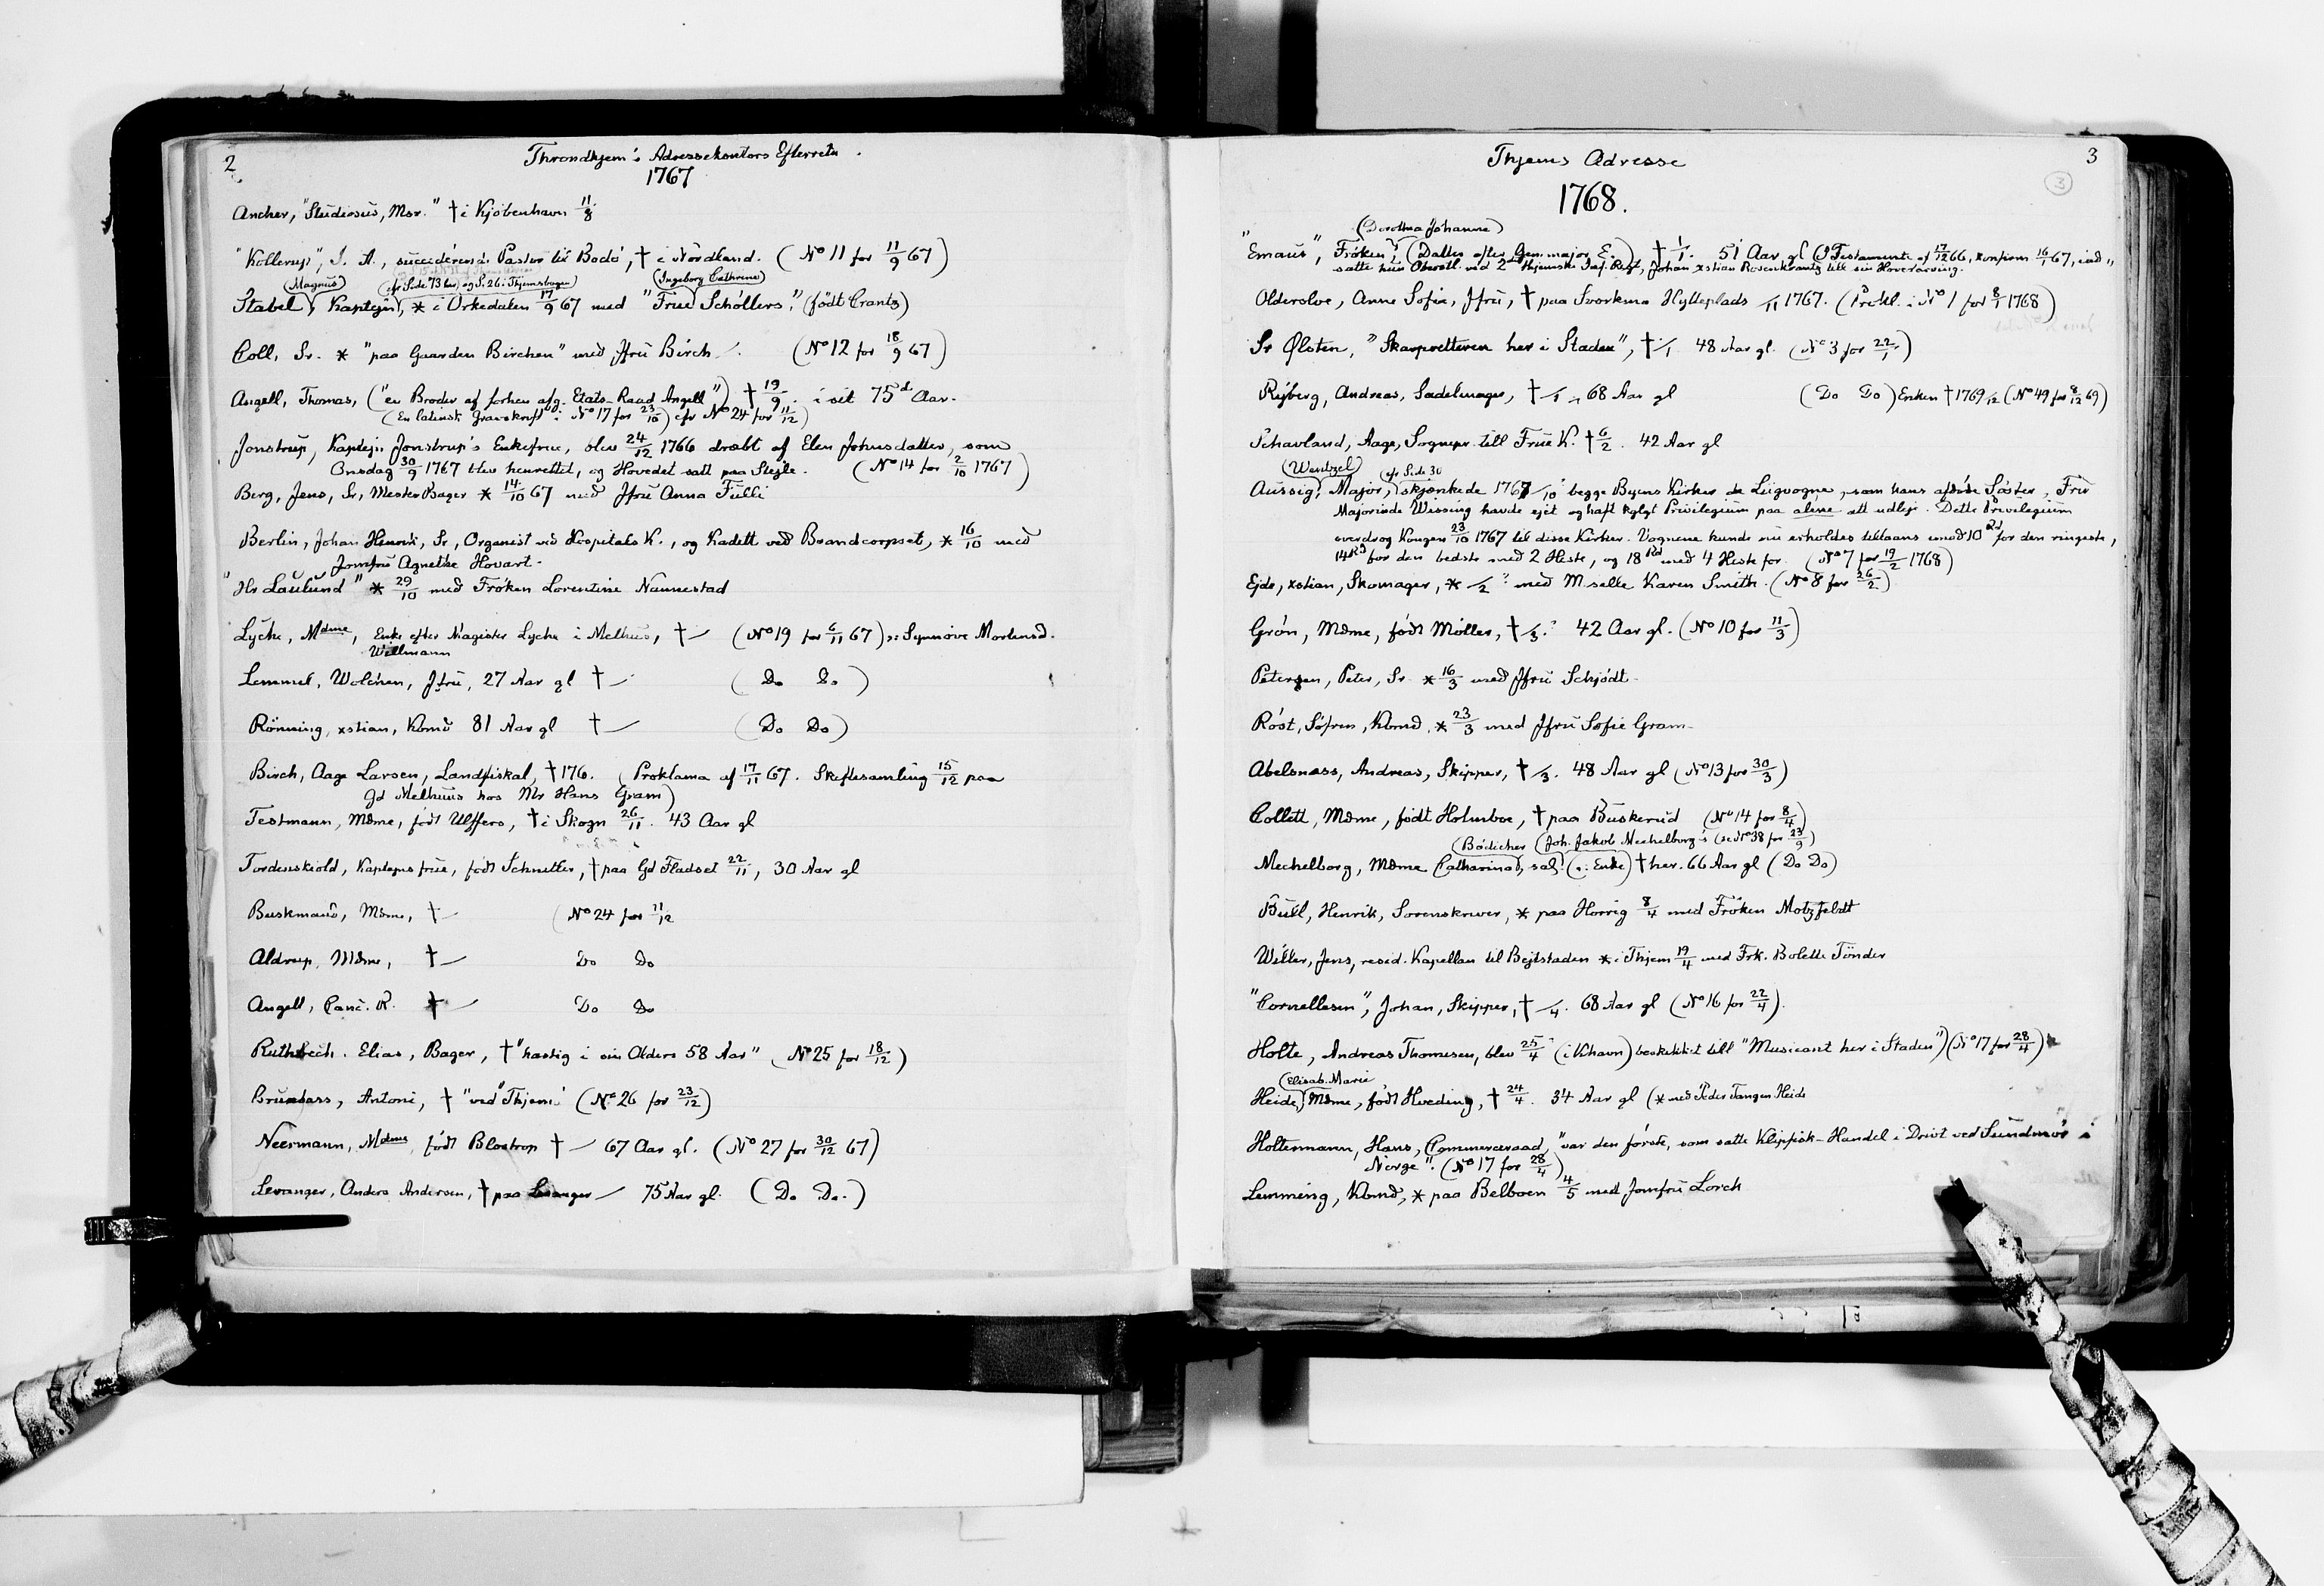 2
Throndhjem's Adressekontors Efterretn.
1767
Ancher, "Studiosus, Msr." † i Kjöbenhavn 11/8
"Kollerup", J. A., succiderend. Pastor til Bodö, † i Nordland. (No 11 for 11/9 67)
(Magnus) (cfr Side 73 her) og S. 26 i Thjemsbogen) (Ingeborg Cathrine)
Stabel, Kaptejn, * i Orkedalen 17/9 67 med "Frue Schöllers", (født Crantz)
Coll, Sr. * "paa Gaarden Birchen" med Jfru Birch -. (No 12 for 18/9 67)
Angell, Thomas, ("en Broder af forhen afg. Etats-Raad Angell") † 19/9. i sit 75d Aar.
(En latinsk Gravskrift i No 17 for 23/10) cfr No 24 for 11/12)
Jonstrup, Kaptejn Jonstrup's Enkefrue, blev 24/12 1766 dræbt af Elen Johnsdatter, som
Onsdag 30/9 1767 blev henrettet, og Hovedet satt paa Stejle. (No 14 for 2/10 1767)
Berg, Jens, Sr, Mester Bager * 14/10 67 med Jfru Anna Fulli
Berlin, Johan Henrik, Sr, Organist ved Hospitals K., og Kadett ved Brandcorpset, * 16/10 med
Jomfru Agnethe Hovart.
"Hr Laulund" * 29/10 med Fröken Lorentine Nannestad
Lyche, Mdme, Enke efter Magister Lyche i Melhus, † - (No 19 for 6/11 67) ɔ: Synnöve Mortensd.
Willmann
Lemmel, Wolchen, Jfru, 27 Aar gl † - (Do Do)
Rönning, xstian, Kbmd 81 Aar gl † - (Do Do)
Birch, Aage Larsen, Landfiskal, † 176. (Proklama af 17/11 67. Skiftesamling 15/12 paa
Gd Melhuus hos Mr Hans Gram)
Testmann, Mdme, født Ulffers, † i Skogn 26/11. 43 Aar gl
Tordenskiold, Kaptejns frue, født Schnitler, † paa Gd Fladset 22/11, 30 Aar gl
Buskmand, Mdme, † - (No 24 for 11/12
Aldrup, Mdme, † - Do Do
Angell, Canc. R. † - Do Do
Ruthbech. Elias, Bager, † "hastig i sin Alders 58 Aar" (No 25 for 18/12)
Antoni, † "ved" Thjem (No 26 for 23/12)
Neermann, Mdme, født Blostrop † - 67 Aar gl. (No 27 for 30/12 67)
Levanger, Anders Andersen, † paa Levanger - 75 Aar gl. (Do Do.)
3
Thjems Adresse
3
1768.
(Dorothea Johanne)
"Emaus", Fröken, (Datter efter Gen.major E.) † 1/1. 51 Aar gl (I Testamente af 17/12 66, konfirm 16/1 67, ind"
satte hun Oberstl. ved 2det Thjemske Inf. Regt, Johan xstian Rosenkrantz till sin Hovedarving.
Oldersloe, Anne Sofie, Jfru, † paa Svorkmo Hytteplads /11 1767. (Prokl. i No 1 for 8/1 1768)
Sr Ølsten, "Skarpretteren her i Staden", † /1 48 Aar gl. (No 3 for 22/1)
Ryberg, Andreas, Sadelmager, † /1 68 Aar gl (Do Do) Enken † 1769/12 (No 49 for 8/12 69)
Schavland, Aage, Sognepr. till Frue K. † 6/2. 42 Aar gl
(Wentzel) cfr Side 30
Aussig, Major, skjænkede 1767/10 begge Byens Kirker de Liigvogne, som hans afdöde Söster, Fru
Majorinde Wissing havde ejet og haft kglgt Privilegium paa alene att udleje. Dette Privilegium
overdrog Kongen 23/10 1767 til disse Kirker. Vognene kunde nu erholdes tillaans imod 10 Rd for den ringeste,
14 Rd for den bedste med 2 Heste, og 18 Rd med 4 Heste for. (No 7 for 19/2 1768)
Ejde, xstian, Skomager, * /2 med M.selle Karen Smith. (No 8 for 26/2)
Grön, Mdme, født Möller, † /3. 42 Aar gl. (No 10 for 11/3)
Petersen, Peter, Sr * 16/3 med Jfru Schjødt
Röst, Söfren, Kbmd, * 23/3 med Jfru Sofie Gram
Abelsnæss, Andreas, Skipper, † /3. 48 Aar gl (No 13 for 30/3)
Collett, Mdme, født Holmboe, † paa Buskerud (No 14 for 8/4)
(Bödicher (Joh. Jakob Mechelborg's (se No 38 for 23/9)
Mechelborg, Mdme Catharina, sal. (ɔ: Enke) † her. 66 Aar gl (Do Do)
Bull, Henrik, Sorenskriver, * paa Horrig 8/4 med Fröken Motzfeldt
Wille, Jens, resid. Kapellan til Bejtstaden * i Thjem 19/4 med Frk. Bolette Tönder
"Cornellesen", Johan, Skipper, † /4. 68 Aar gl (No 16 for 22/4).
Holte, Andreas Thomesen, blev 25/4 (i Khavn) beskikket till "Musicant her i Staden") (No 17 for 28/4)
(Elisab. Marie
Heide, Mdme, født Hveding, † 24/4. 34 Aar gl (* med Peder Tangen Heide
Holtermann, Hans, Commerceraad, "var den förste, som satte Klipfisk-Handel i Drivt ved Sundmör i
Norge". (No 17 for 28/4)
Lemming, Kbmd, * paa Belboen 4/5 med Jomfru Lorch